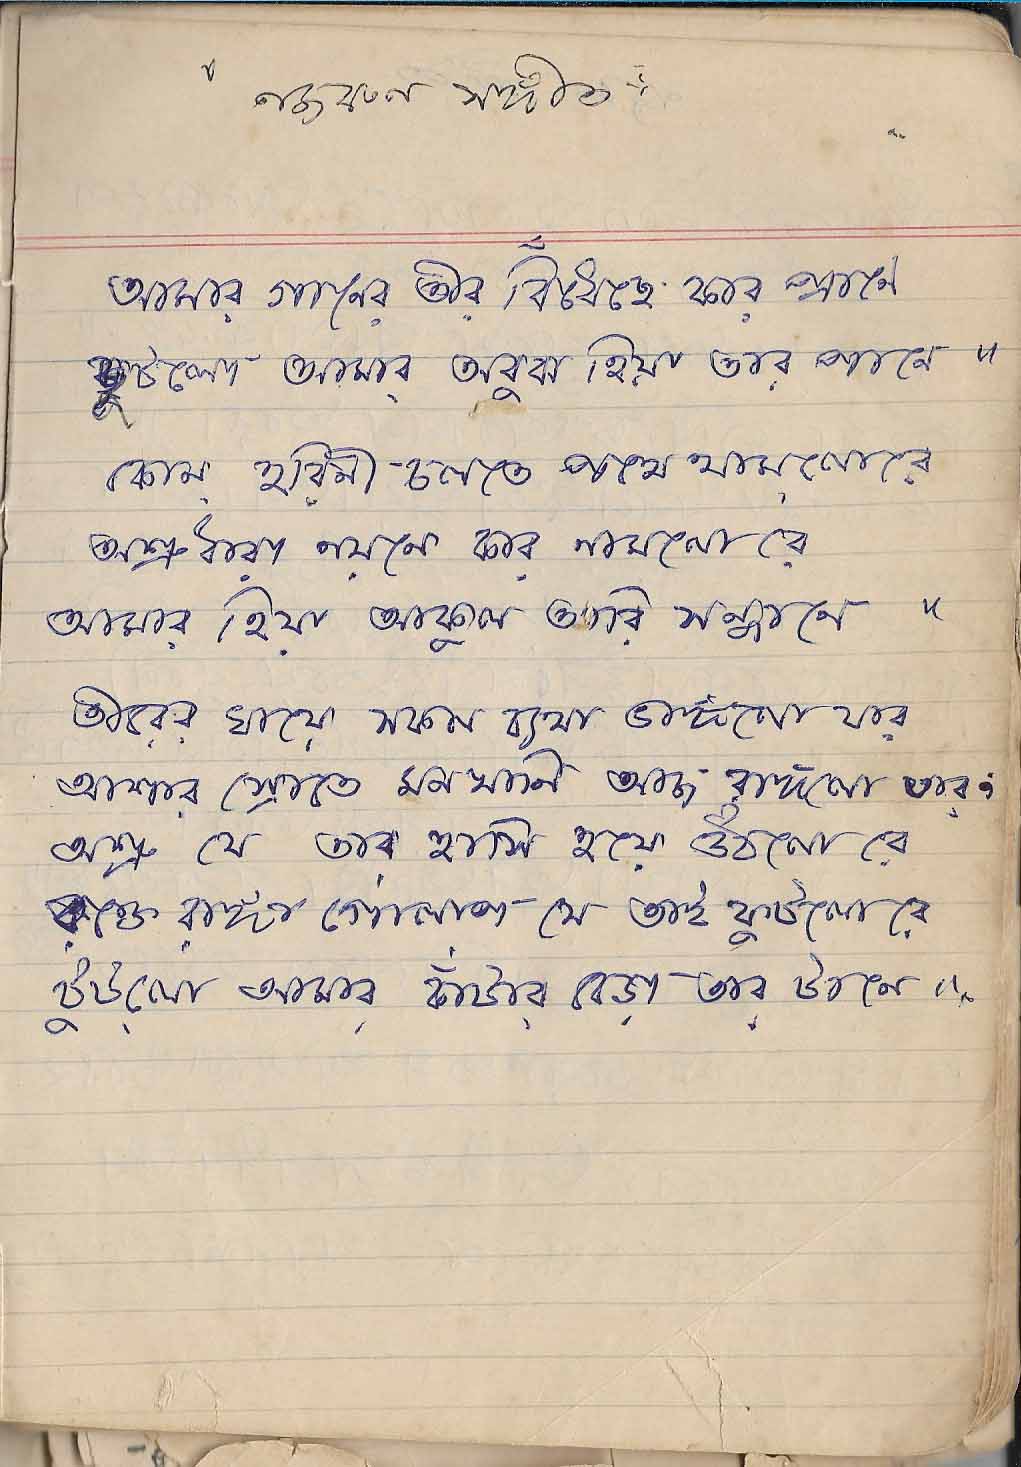 নজরুল সঙ্গীত
আমার গানের তীর বিঁধেছে কার প্রাণে
ছুটলো আমার অবুঝ হিয়া তার পানে "
কোন্ হরিণী চলতে পথে থাম্‌লোরে
অশ্রুধারা নয়নে কার নামলো রে
আমার হিয়া আকুল তারি সন্ধানে "
তীরের ঘায়ে সফল ব্যথা ভাঙ্গলো যার
আশার স্রোতে মনখানি আজ রাঙ্গলো তার
অশ্রু যে তার হাসি হয়ে উঠলো রে
রক্তে রাঙ্গা গোলাপ যে তাই ফুটলো রে
টুটলো আমার কাঁটার বেড়া তার টানে "